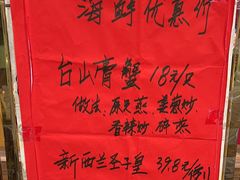 海鲜优惠价
台山膏蟹 18元/只
做法:原只蒸、姜葱炒
香辣炒 碎蒸
新西兰圣子皇 39.8元/